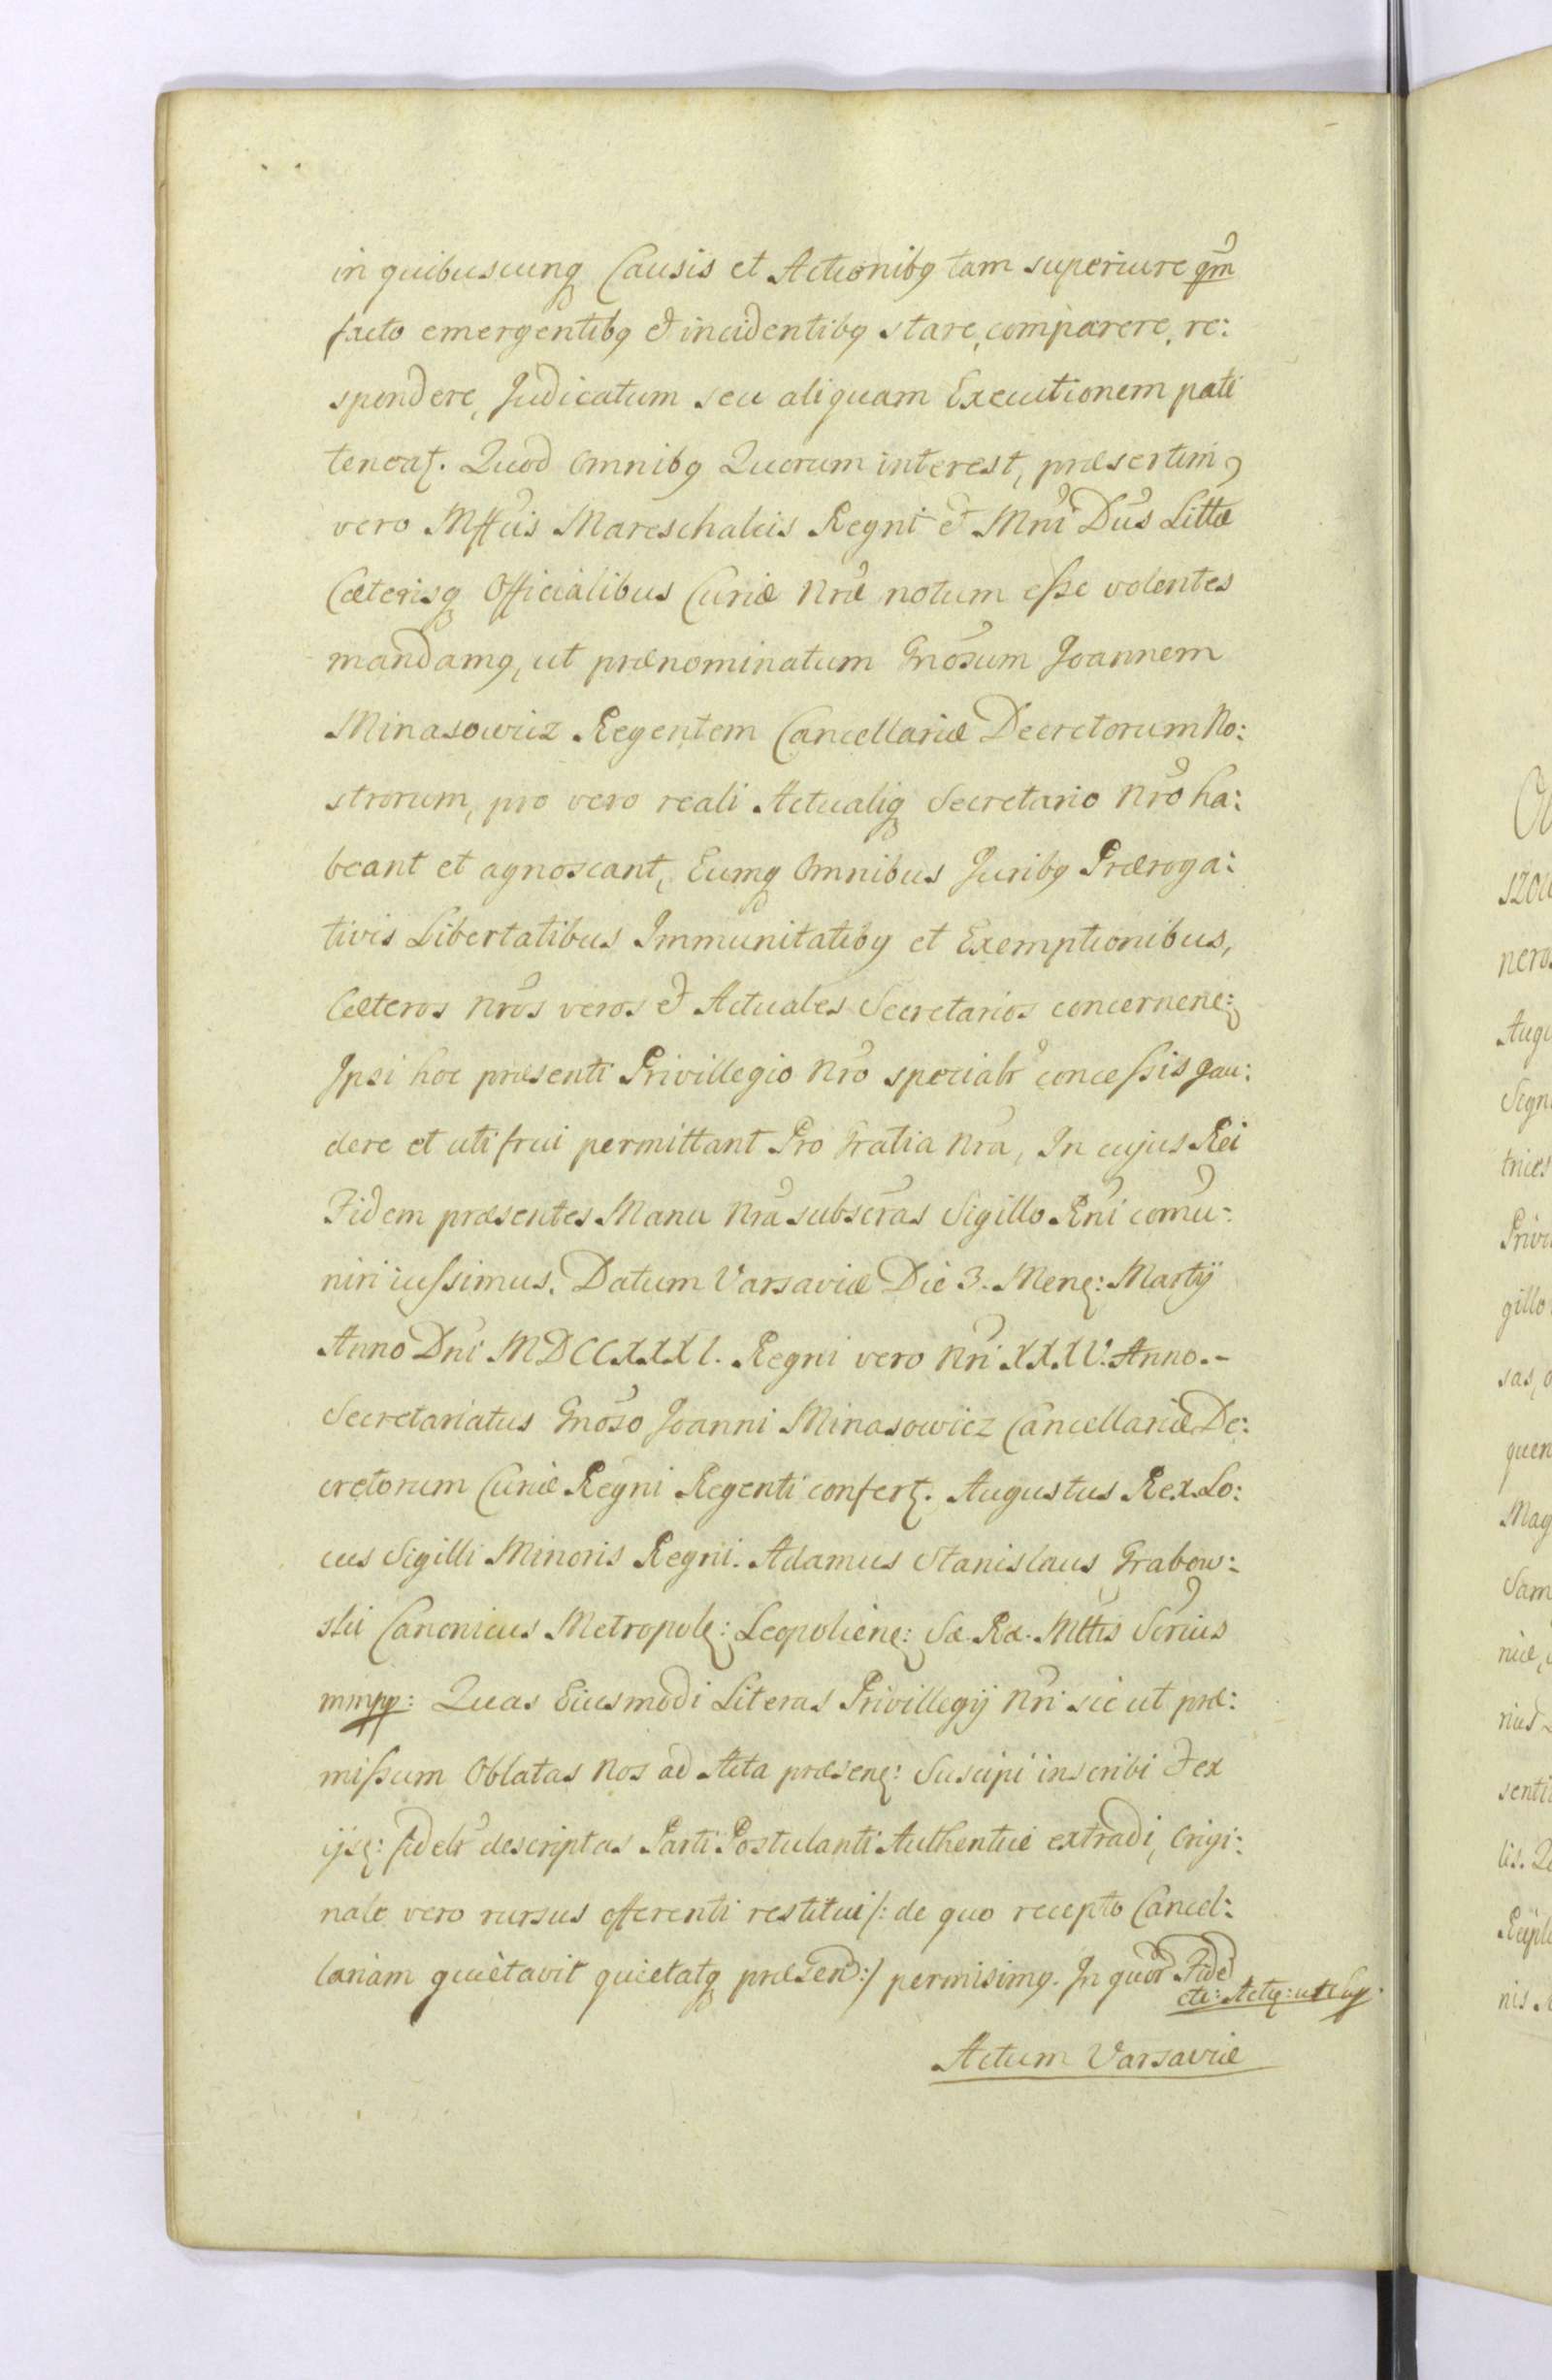 in quibuscunq Causis et Actionibq tam superiure qm̃
facto emergentibq et incidentibq stare, comparere, re:
spondere, Judicatum seu aliquam Executionem pati
teneat. Quod Omnibq Quorum interest, præsertim
vero Mffcis Mareschalcis Regni et Mni Dus Littæ
Cæterisq Officialibus Curiæ Nræ notum esse volentes
mandamq, ut prænominatum Gnosum Joannem
Minasowicz Regentem Cancellariæ Decretorum No:
strorum, pro vero reali Actualiq Secretario Nro ha:
beant et agnoscant, Eumq Omnibus Juribq Præroga:
tivis Libertatibus Immunitatibq et Exemptionibus,
Cæteros Nros veros et Actuales Secretarios concernen:
Ipsi hoc præsenti Privillegio Nro specialr concessis gau:
dere et uti frui permittant Pro Gratia Nra, In cujus Rei
Fidem præsentes Manu Nra subscras Sigillo Rni comu:
niri iussimus. Datum Varsaviæ Die 3. Mens: Martij
Anno Dni MDCCXXXI. Regni vero Nri XXXV. Anno.-
Secretariatus Gnoso Joanni Minasowicz Cancellariæ De:
cretorum Curiæ Regni Regenti confert. Augustus Rex. Lo:
cus Sigilli Minoris Regni. Adamus Stanislaus Grabow:
ski Canonicus Metropol: Leopolien: Sæ. Ræ. Mttis Scrius
mmpp: Quas Eiusmodi Literas Privillegij Nri sic ut præ:
missum Oblatas Nos ad Acta præsen: Suscipi inscribi et ex
ijs: fidelr descriptas Parti Postulanti Authentice extradi, Origi:
nale vero rursus offerenti restitui /: de quo recepto Cancel:
lariam quietavit quietatq præsen:/ permisimq. In quor Fide
etc: Actu
Actum Varsaviæ